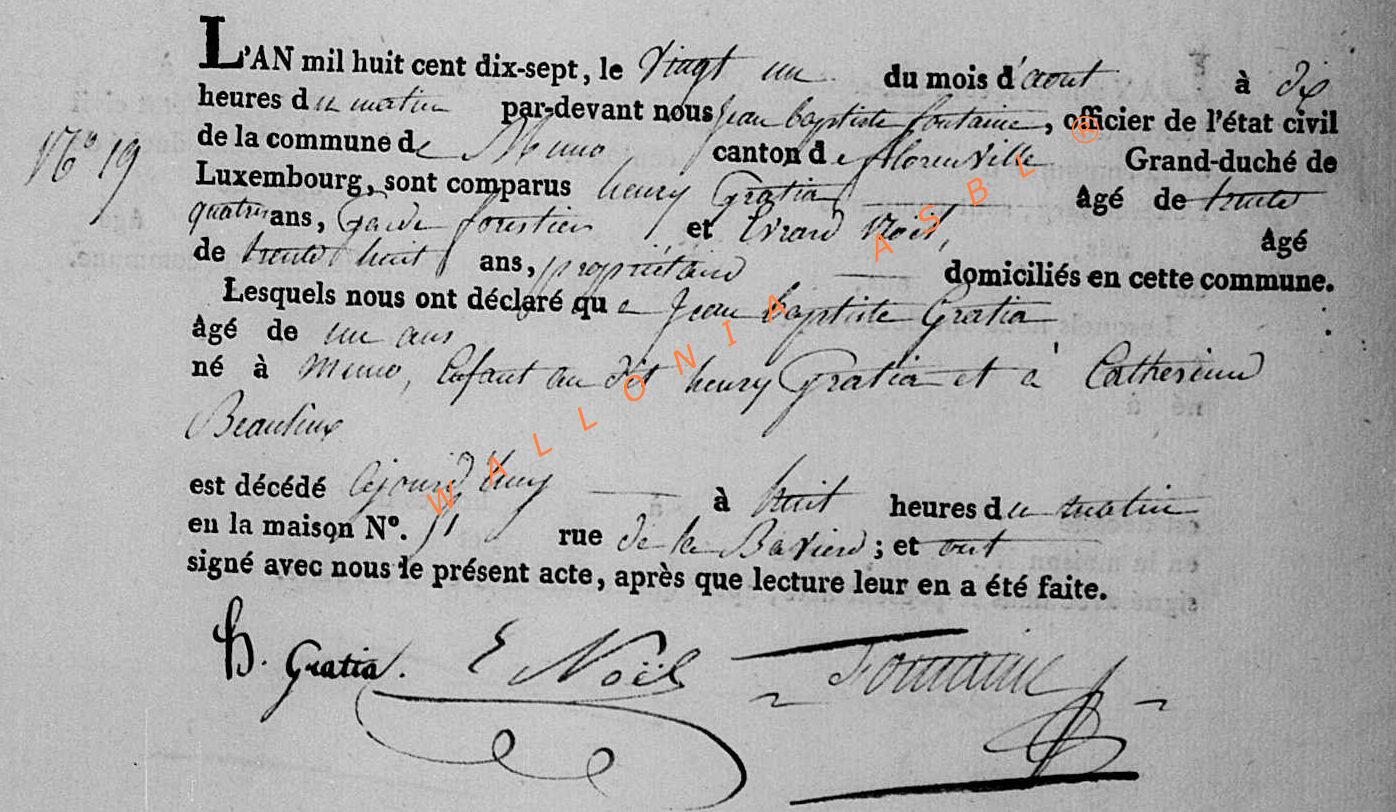 L'AN mil huit cent dix-sept, le Vingt un du mois d'aout à dix
heures du matin par-devant nous Jean baptiste fontaine, officier de l'état civil
N.º 19
de la commune de Muno canton de florenville Grand-duché de
Luxembourg, sont comparus henry Gratia âgé de trente
quatre ans, Garde forestier et Evrard Noël, âgé
de trente huit ans, propriétaire domiciliés en cette commune.
Lesquels nous ont déclaré que Jean baptiste Gratia
âgé de un ans
né à Muno, Enfant au dit henry Gratia et à Catherine
Beaulieux
est décédé ajourd'huy à huit heures du matin
en la maison Nº. 51 rue de la Baviere; et ont
signé avec nous le présent acte, après que lecture leur en a été faite.
H. Gratia. E Noël Fontaine
WALLONIA ASBL ®